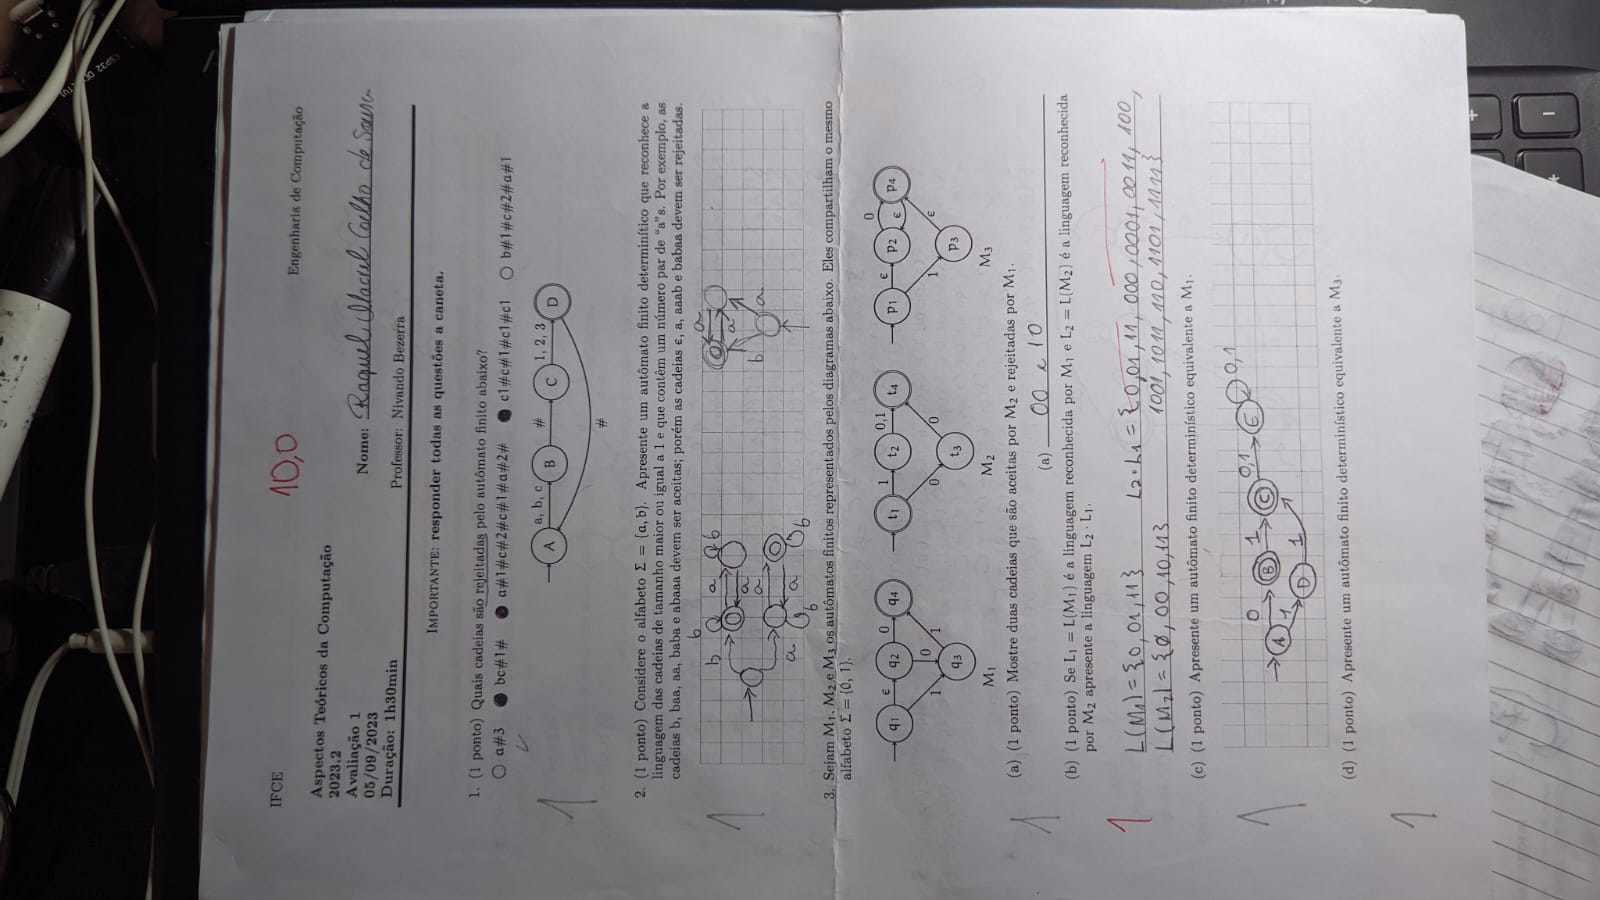 IFCE
Engenharia de Computação
10,0
Aspectos Teóricos da Computação
2023.2
Nome: Raquel Maciel Coelho de Sousa
Avaliação 1
05/09/2023
Professor: Nivando Bezerra
Duração: 1h30min
IMPORTANTE: responder todas as questões a caneta.
1. (1 ponto) Quais cadeias são rejeitadas pelo autômato finito abaixo?
○ a#3 ● bc#1# ● a#1#c#2#c#1#a#2# ● c1#c#1#c1#c1 ○ b#1#c#2#a#1
1
A a, b, c B # C 1, 2, 3 D
#
2. (1 ponto) Considere o alfabeto Σ = {a, b}. Apresente um autômato finito determinítico que reconhece a
linguagem das cadeias de tamanho maior ou igual a 1 e que contêm um número par de "a"s. Por exemplo, as
cadeias b, baa, aa, baba e abaaa devem ser aceitas; porém as cadeias ϵ, a, aaab e babaa devem ser rejeitadas.
1
b b
b a a
a a a
b b
a
a
b a
3. Sejam M₁, M₂ e M₃ os autômatos finitos representados pelos diagramas abaixo. Eles compartilham o mesmo
alfabeto Σ = {0, 1}.
q₁ ϵ q₂ 0 q₄ 1 0 1 q₃
M₁
t₁ 1 t₂ 0,1 t₄ 0 0 t₃
M₂
p₁ ϵ p₂ 0 ϵ p₄ 1 ϵ p₃
M₃
(a) (1 ponto) Mostre duas cadeias que são aceitas por M₂ e rejeitadas por M₁.
1
(a) 00 e 10
(b) (1 ponto) Se L₁ = L(M₁) é a linguagem reconhecida por M₁ e L₂ = L(M₂) é a linguagem reconhecida
por M₂ apresente a linguagem L₂ · L₁.
1
L(M1) = {0, 01, 11} L2∘L1 = {0, 01, 11, 000, 0001, 0011, 100,
L(M2) = {∅, 00, 10, 11} 1001, 1011, 110, 1101, 1111}
(c) (1 ponto) Apresente um autômato finito determinístico equivalente a M₁.
1
A 0 B 1 C 0,1 E 0,1
1 D 1
(d) (1 ponto) Apresente um autômato finito determinístico equivalente a M₃.
1